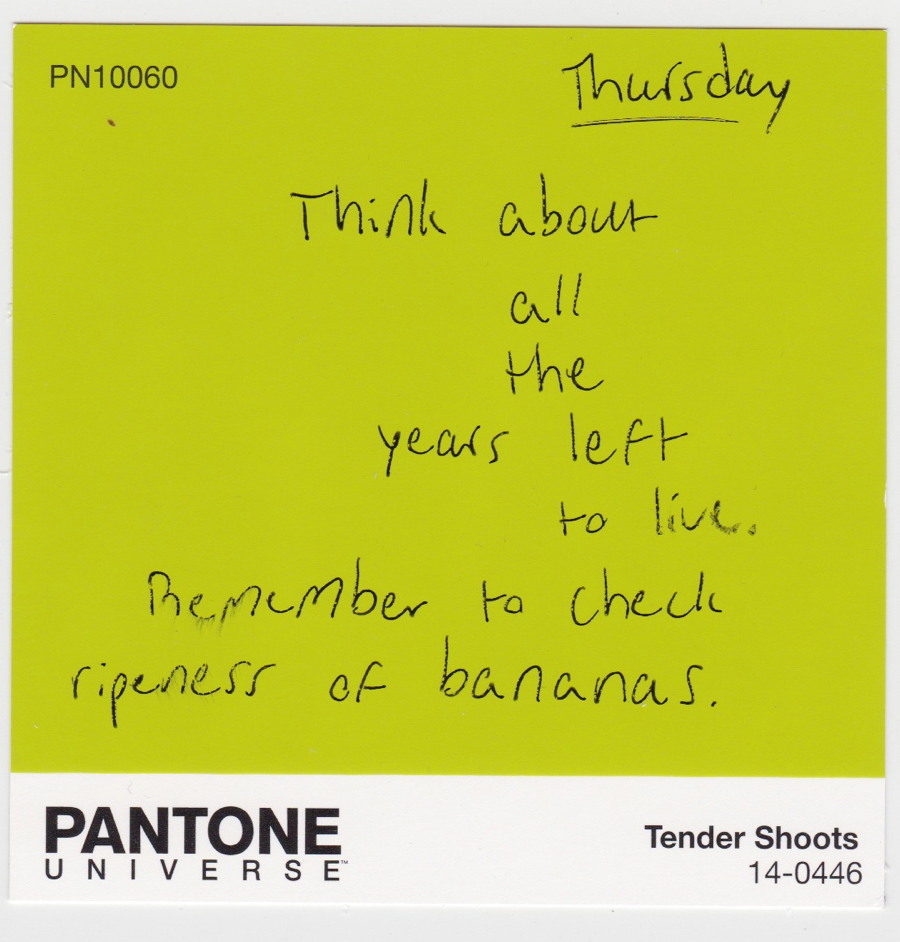 PN10060
Thursday
Think about
all
the
years left
to live.
Remember to check
ripeness of bananas.
PANTONE
UNIVERSE™
Tender Shoots
14-0446